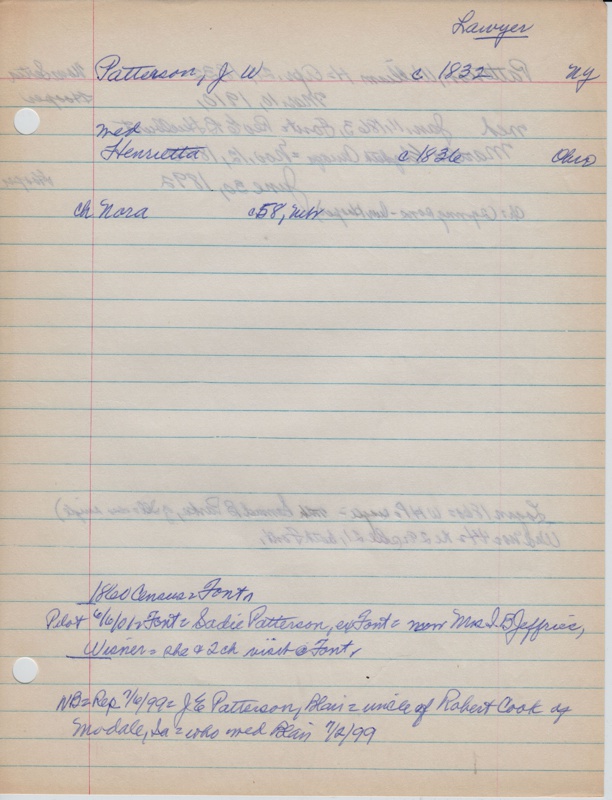 Lawyer
Patterson, J W c 1832 NY
med
Henrietta c 1836 Ohio
ch Nora c58, Neb
1860 Census = Font,
Pilot 6/6/01 = Font = Sadie Patterson, ex Font = now Mrs I B Jeffries,
Wisner = she & 2 ch visit @ Font,
NB = Rep 7/6/99 = J E Patterson, Blair = uncle of Robert Cook of
Modale, Ia = who med Blair 7/2/99